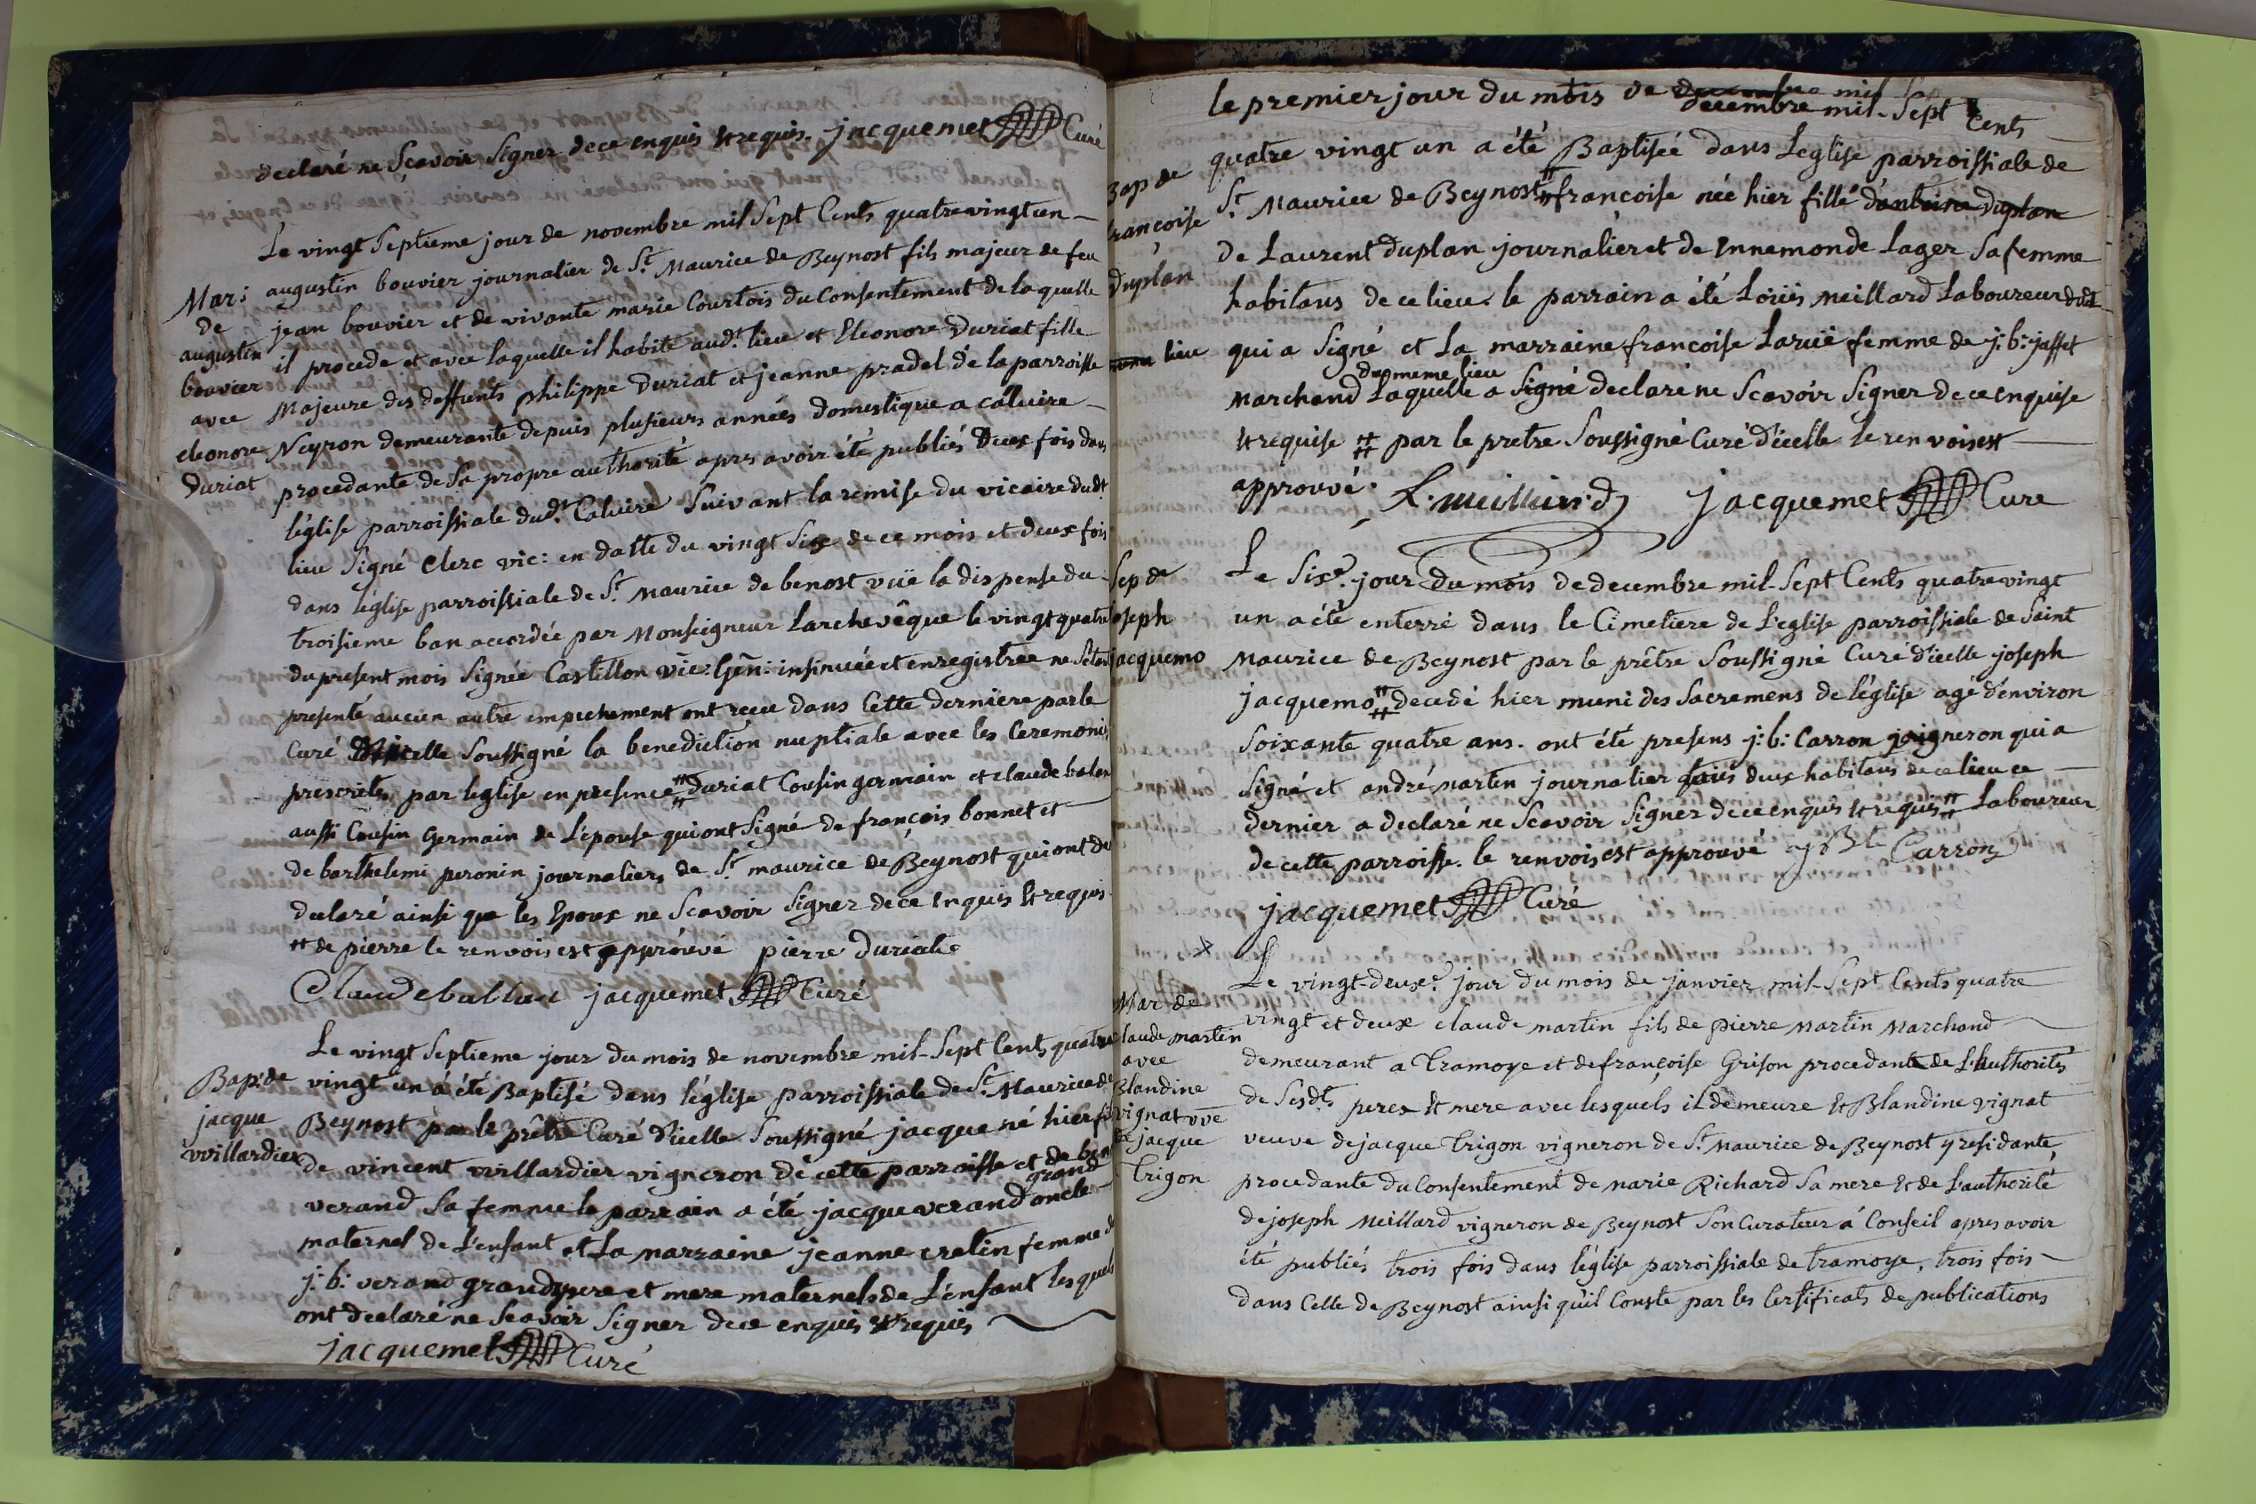 declaré ne Scavoir Signer dece enquis et requis. jacquemet Curé
Le vingt Septieme jour de novembre mil Sept Cents quatrevingt un
Mar: de augustin bouvier avec eleonore Duriat
augustin bouvier journalier de St. Maurice de Beynost fils majeur de feu
jean bouvier et de vivante marie Courtois du Consentement de laquelle
il procede et avec laquelle il habite aud.t lieu et Eleonore Duriat fille
Majeure des deffunts philippe Duriat et jeanne pradel de la parroisse
Neyron demeurante depuis plusieurs années domestique a caluire
procedante de Sa propre authorité apres avoir été publiés Deux fois dans
l'église parroissiale dud.t Caluire Suivant la remise du vicaire dudt
lieu Signé Clerc vic: en datte du vingt Six de ce mois et deux fois
dans l'église parroissiale de St. Maurice de benost vüe la dispense du
troisieme ban accordée par Monseigneur Larchevêque le vingt quatre
du present mois Signée Castillon vic: Gen: insinuée et enregistrée ne S'etant
presenté aucun autre empechement ont reçu dans Cette derniere par le
Curé d'icelle Soussigné la benediction nuptiale avec les Ceremonies
prescrites par l'eglise en presence # Duriat Cousin germain et claude balan
aussi Cousin Germain de L'epouse qui ont Signé de françois bonnet et
de barthelemi peronin journaliers de St. maurice de Beynost qui ont de
declaré ainsi que les Epoux ne Scavoir Signer dece Enquis Et requis
# de pierre le renvois est approuvé pierre duriat
Claude ballan jacquemet Curé
Le vingt Septieme jour du mois de novembre mil-Sept Cents quatre
Bap: de jacque vvillardier
vingt un a été Baptisé dans l'église parroissiale de St. Maurice de
Beynost par le prêtre Curé d'icelle Soussigné jacque né hier fils
de vincent vvillardier vigneron de cette parroisse et de
verand Sa femme le parrain a été jacque verand grand oncle
maternel de L'enfant et La marraine jeanne cretin femme de
j: b: verand grand pere et mere maternels de L'enfant lesquels
ont declaré ne Scavoir Signer dece enquis et requis
jacquemet Curé
le premier jour du mois de decembre mil-Sept Cents
Bap de françoise Duplan
quatre vingt un a été Baptisée dans L'eglise parroissiale de
St. Maurice de Beynost # françoise née hier fille d'antoine duplan
de Laurent Duplan journalier et de Innemonde Lager Sa femme
habitans de ce lieu. le parrain a été Loüis Meillard Laboureur dudt
lieu qui a Signé et La marraine françoise Laruë femme de j: b: jaffet
marchand du meme lieu Laquelle a Signé declaré ne Scavoir Signer de ce enquise
et requise # par le pretre Soussigné Curé d'icelle le renvois est
approuvé. L. meilliard jacquemet Curé
Sep de joseph jacquemo
Le Sixe. jour du mois de decembre mil-Sept Cents quatrevingt
un a été enterré dans le Cimetiere de L'eglise parroissiale de Saint
Maurice de Beynost par le prêtre Soussigné Curé d'icelle joseph
jacquemo # decedé hier muni des Sacremens de l'église agé d'environ
Soixante quatre ans. ont été presens j: b: Carron vigneron qui a
Signé et andré martin journalier tous deux habitans de ce lieu ce
dernier a declaré ne Scavoir Signer dece enquis et requis # Laboureur
de cette parroisse. le renvois est approuvé j Bte Carron
jacquemet Curé
Mar de claude martin avec Blandine vignat vve de jacque Trigon
Le vingt-deuxe. jour du mois de janvier mil-Sept Cents quatre
vingt et deux claude martin fils de pierre Martin Marchand
demeurant a Tramoye et de françoise Grison procedant de L'authorité
de Sesdts peres et mere avec lesquels il demeure Et Blandine vignat
veuve de jacque Trigon vigneron de St. Maurice de Beynost y residante,
procedante du Consentement de marie Richard Sa mere Et de L'authorité
de joseph Meillard vigneron de Beynost Son Curateur a Conseil apres avoir
été publiés trois fois dans l'église parroissiale de Tramoye, trois fois
dans Celle de Beynost ainsi qu'il Conste par les Certificats de publications